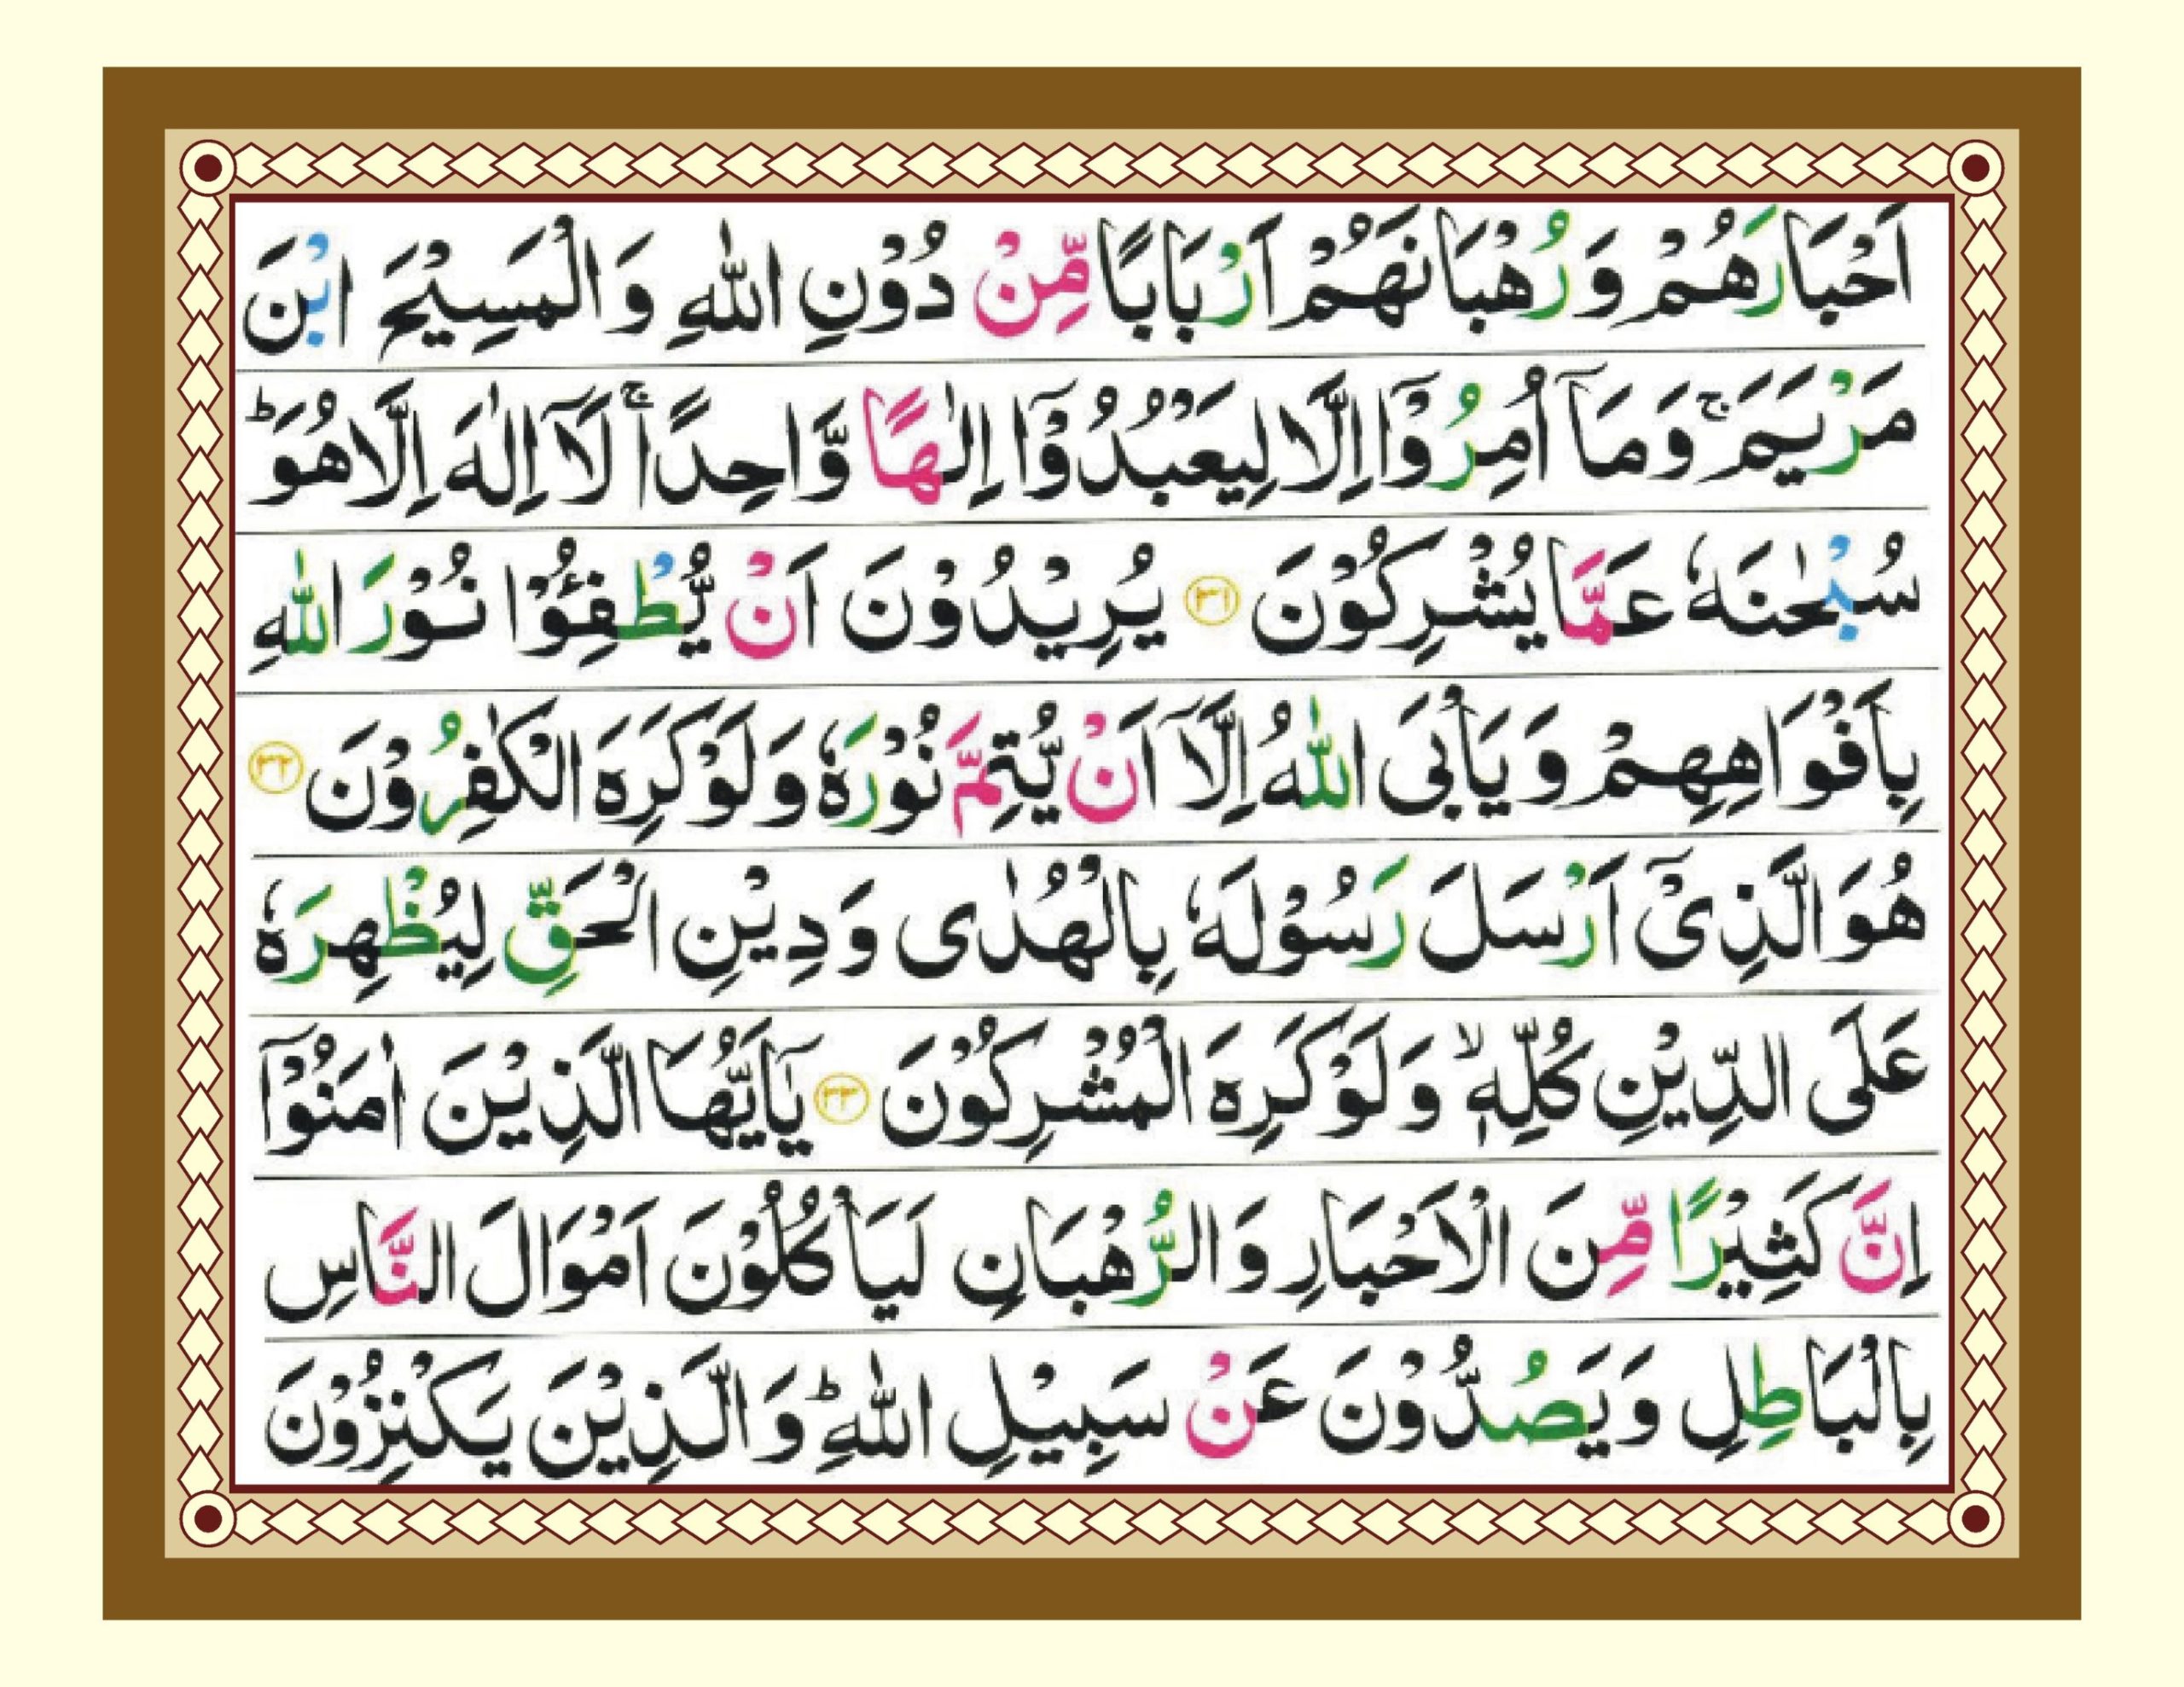 اَحْبَارَهُمْ وَ رُهْبَانَهُمْ اَرْبَابًا مِّنْ دُوْنِ اللّٰهِ وَ الْمَسِيْحَ ابْنَ
مَرْيَمَ ۚ وَ مَآ اُمِرُوْٓا اِلَّا لِيَعْبُدُوْٓا اِلٰهًا وَّاحِدًا ۚ لَآ اِلٰهَ اِلَّا هُوَ ؕ
سُبْحٰنَهٗ عَمَّا يُشْرِكُوْنَ ﴿۳۱﴾ يُرِيْدُوْنَ اَنْ يُّطْفِـُٔوْا نُوْرَ اللّٰهِ
بِاَفْوَاهِهِمْ وَ يَاْبَى اللّٰهُ اِلَّآ اَنْ يُّتِمَّ نُوْرَهٗ وَ لَوْ كَرِهَ الْكٰفِرُوْنَ ﴿۳۲﴾
هُوَ الَّذِىْٓ اَرْسَلَ رَسُوْلَهٗ بِالْهُدٰى وَ دِيْنِ الْحَقِّ لِيُظْهِرَهٗ
عَلَى الدِّيْنِ كُلِّهٖ ۙ وَ لَوْ كَرِهَ الْمُشْرِكُوْنَ ﴿۳۳﴾ يٰٓاَيُّهَا الَّذِيْنَ اٰمَنُوْٓا
اِنَّ كَثِيْرًا مِّنَ الْاَحْبَارِ وَ الرُّهْبَانِ لَيَاْكُلُوْنَ اَمْوَالَ النَّاسِ
بِالْبَاطِلِ وَ يَصُدُّوْنَ عَنْ سَبِيْلِ اللّٰهِ ؕ وَ الَّذِيْنَ يَكْنِزُوْنَ